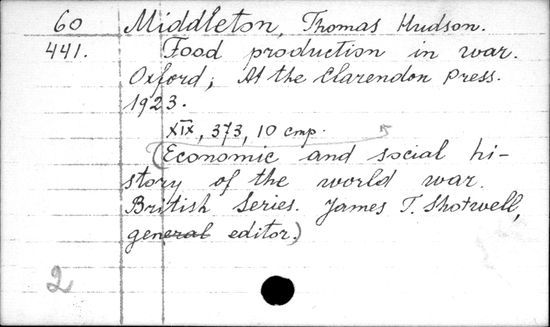 60 Middleton, Thomas Hudson.
441. Food production in war.
Oxford, At the Clarendon Press.
1923.
XIX, 373, 10 cmp.
(Economic and social hi-
story of the world war.
British Series. James T. Shotwell,
general editor.)
2